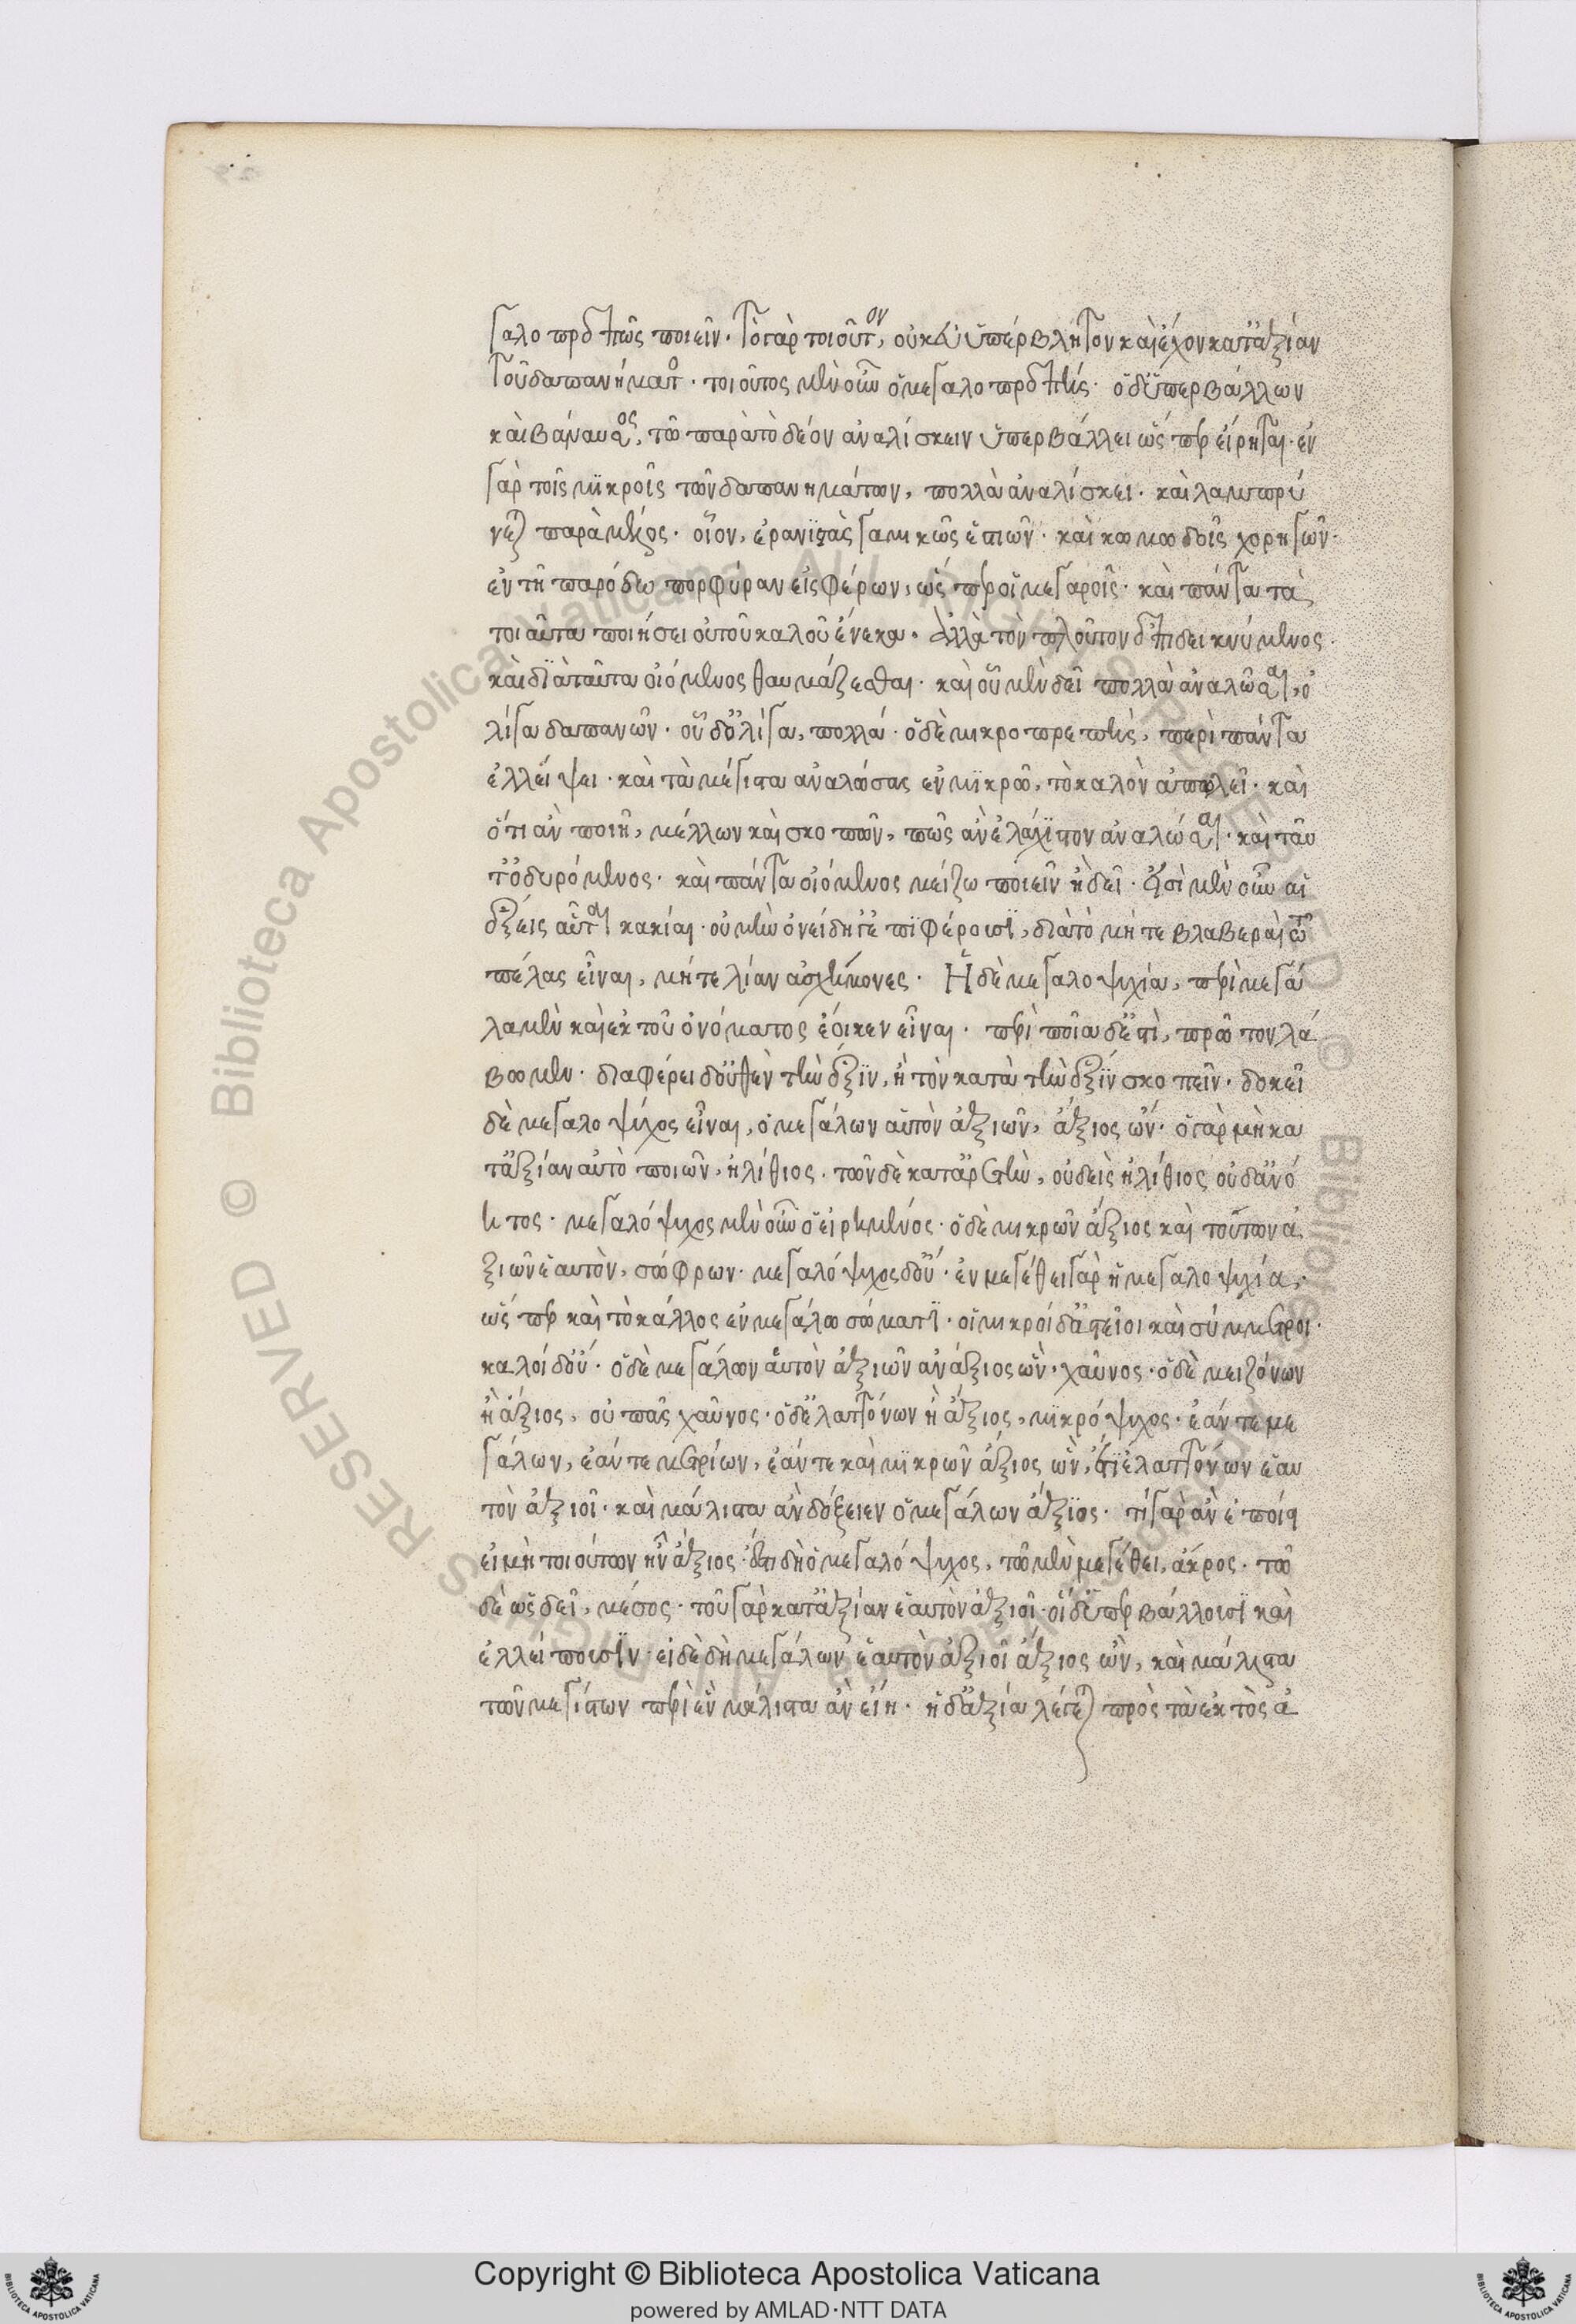 γαλοπρεπῶς ποιεῖν· τὸ γὰρ τοιοῦτον, οὐκ εὐϋπέρβλητον καὶ ἔχον κατ' ἀξίαν
τοῦ δαπανήματος· τοιοῦτος μὲν οὖν ὁ μεγαλοπρεπής· ὁ δ' ὑπερβάλλων
καὶ βάναυσος, τῷ παρὰ τὸ δέον ἀναλίσκειν ὑπερβάλλει ὥσπερ εἴρηται· ἐν
γὰρ τοῖς μικροῖς τῶν δαπανημάτων, πολλὰ ἀναλίσκει· καὶ λαμπρύ
νεται παρὰ μέλος· οἷον, ἐρανιστὰς γαμικῶς ἑστιῶν· καὶ κωμωδοῖς χορηγῶν·
ἐν τῆ παρόδω πορφύραν εἰσφέρων, ὥσπερ οἱ μεγαροῖς· καὶ πάντα τὰ
τοιαῦτα ποιήσει οὐ τοῦ καλοῦ ἕνεκα· ἀλλὰ τὸν πλοῦτον ἐπιδεικνύμενος·
καὶ διὰ ταῦτα οἰόμενος θαυμάζεσθαι· καὶ οὗ μὲν δεῖ πολλὰ ἀναλῶσαι, ὀ
λίγα δαπανῶν· οὗ δ' ὀλίγα, πολλά· ὁ δὲ μικροπρεπὴς, περὶ πάντα
ἐλλείψει· καὶ τὰ μέγιστα ἀναλώσας ἐν μικρῶ, τὸ καλὸν ἀπολεῖ· καὶ
ὅτι ἂν ποιῆ, μέλλων καὶ σκοπῶν, πῶς ἂν ἐλάχιστον ἀναλώσαι· καὶ ταῦ
τ' ὀδυρόμενος· καὶ πάντα οἰόμενος μείζω ποιεῖν ἢ δεῖ· εἰσὶ μὲν οὖν αἱ
ἕξεις αὗται κακίαι· οὐ μὴν ὀνείδη γ' ἐπιφέρουσι, διὰ τὸ μήτε βλαβεραὶ τῶ
πέλας εἶναι, μήτε λίαν ἀσχήμονες· Ἡ δὲ μεγαλοψυχία, περὶ μεγά
λα μὲν καὶ ἐκ τοῦ ὀνόματος ἔοικεν εἶναι· περὶ ποῖα δ' ἐστὶ, πρῶτον λά
βωμεν· διαφέρει δ' οὐθὲν τὴν ἕξιν, ἢ τὸν κατὰ τὴν ἕξιν σκοπεῖν· δοκεῖ
δὲ μεγαλοψύχος εἶναι, ὁ μεγάλων αὑτὸν ἀξιῶν, ἄξιος ὤν· ὁ γὰρ μὴ κα
τ' ἀξίαν αὐτὸ ποιῶν, ἠλίθιος· τῶν δὲ κατ' ἀρετὴν, οὐδεὶς ἠλίθιος οὐδ' ἀνό
ητος· μεγαλόψυχος μὲν οὖν ὁ εἰρημένος· ὁ δὲ μικρῶν ἄξιος καὶ τούτων ἀ
ξιῶν ἑαυτὸν, σώφρων· μεγαλόψυχος δ' οὔ· ἐν μεγέθει γὰρ ἡ μεγαλοψυχία,
ὥσπερ καὶ τὸ κάλλος ἐν μεγάλω σώματι· οἱ μικροὶ δ' ἀστεῖοι καὶ σύμμετροι·
καλοὶ δ' οὔ· ὁ δὲ μεγάλων ἑαυτὸν ἀξιῶν ἀνάξιος ὢν, χαῦνος· ὁ δὲ μειζόνων
ἢ ἄξιος, οὐ πᾶς χαῦνος· ὁ δ' ἐλαττόνων ἢ ἄξιος, μικρόψυχος· ἐάν τε με
γάλων, ἐάν τε μετρίων, ἐάν τε καὶ μικρῶν ἄξιος ὢν, ἔτι ἐλαττόνων ἑαυ
τὸν ἀξιοῖ· καὶ μάλιστα ἂν δόξειεν ὁ μεγάλων ἄξιος· τί γὰρ ἂν ἐποίει
εἰ μὴ τοιούτων ἦν ἄξιος· ἔστι δὴ ὁ μεγαλόψυχος, τῶ μὲν μεγέθει, ἄκρος· τῶ
δὲ ὡς δεῖ, μέσος· τοῦ γὰρ κατ' ἀξίαν ἑαυτὸν ἀξιοῖ· οἱ δ' ὑπερβάλλουσι καὶ
ἐλλείπουσιν· εἰ δὲ δὴ μεγάλων ἑαυτὸν ἀξιοῖ ἄξιος ὢν, καὶ μάλιστα
τῶν μεγίστων περὶ ἓν μάλιστα ἂν εἴη· ἡ δ' ἀξία λέγεται πρὸς τὰ ἐκτὸς ἀ
Copyright © Biblioteca Apostolica Vaticana
powered by AMLAD·NTT DATA